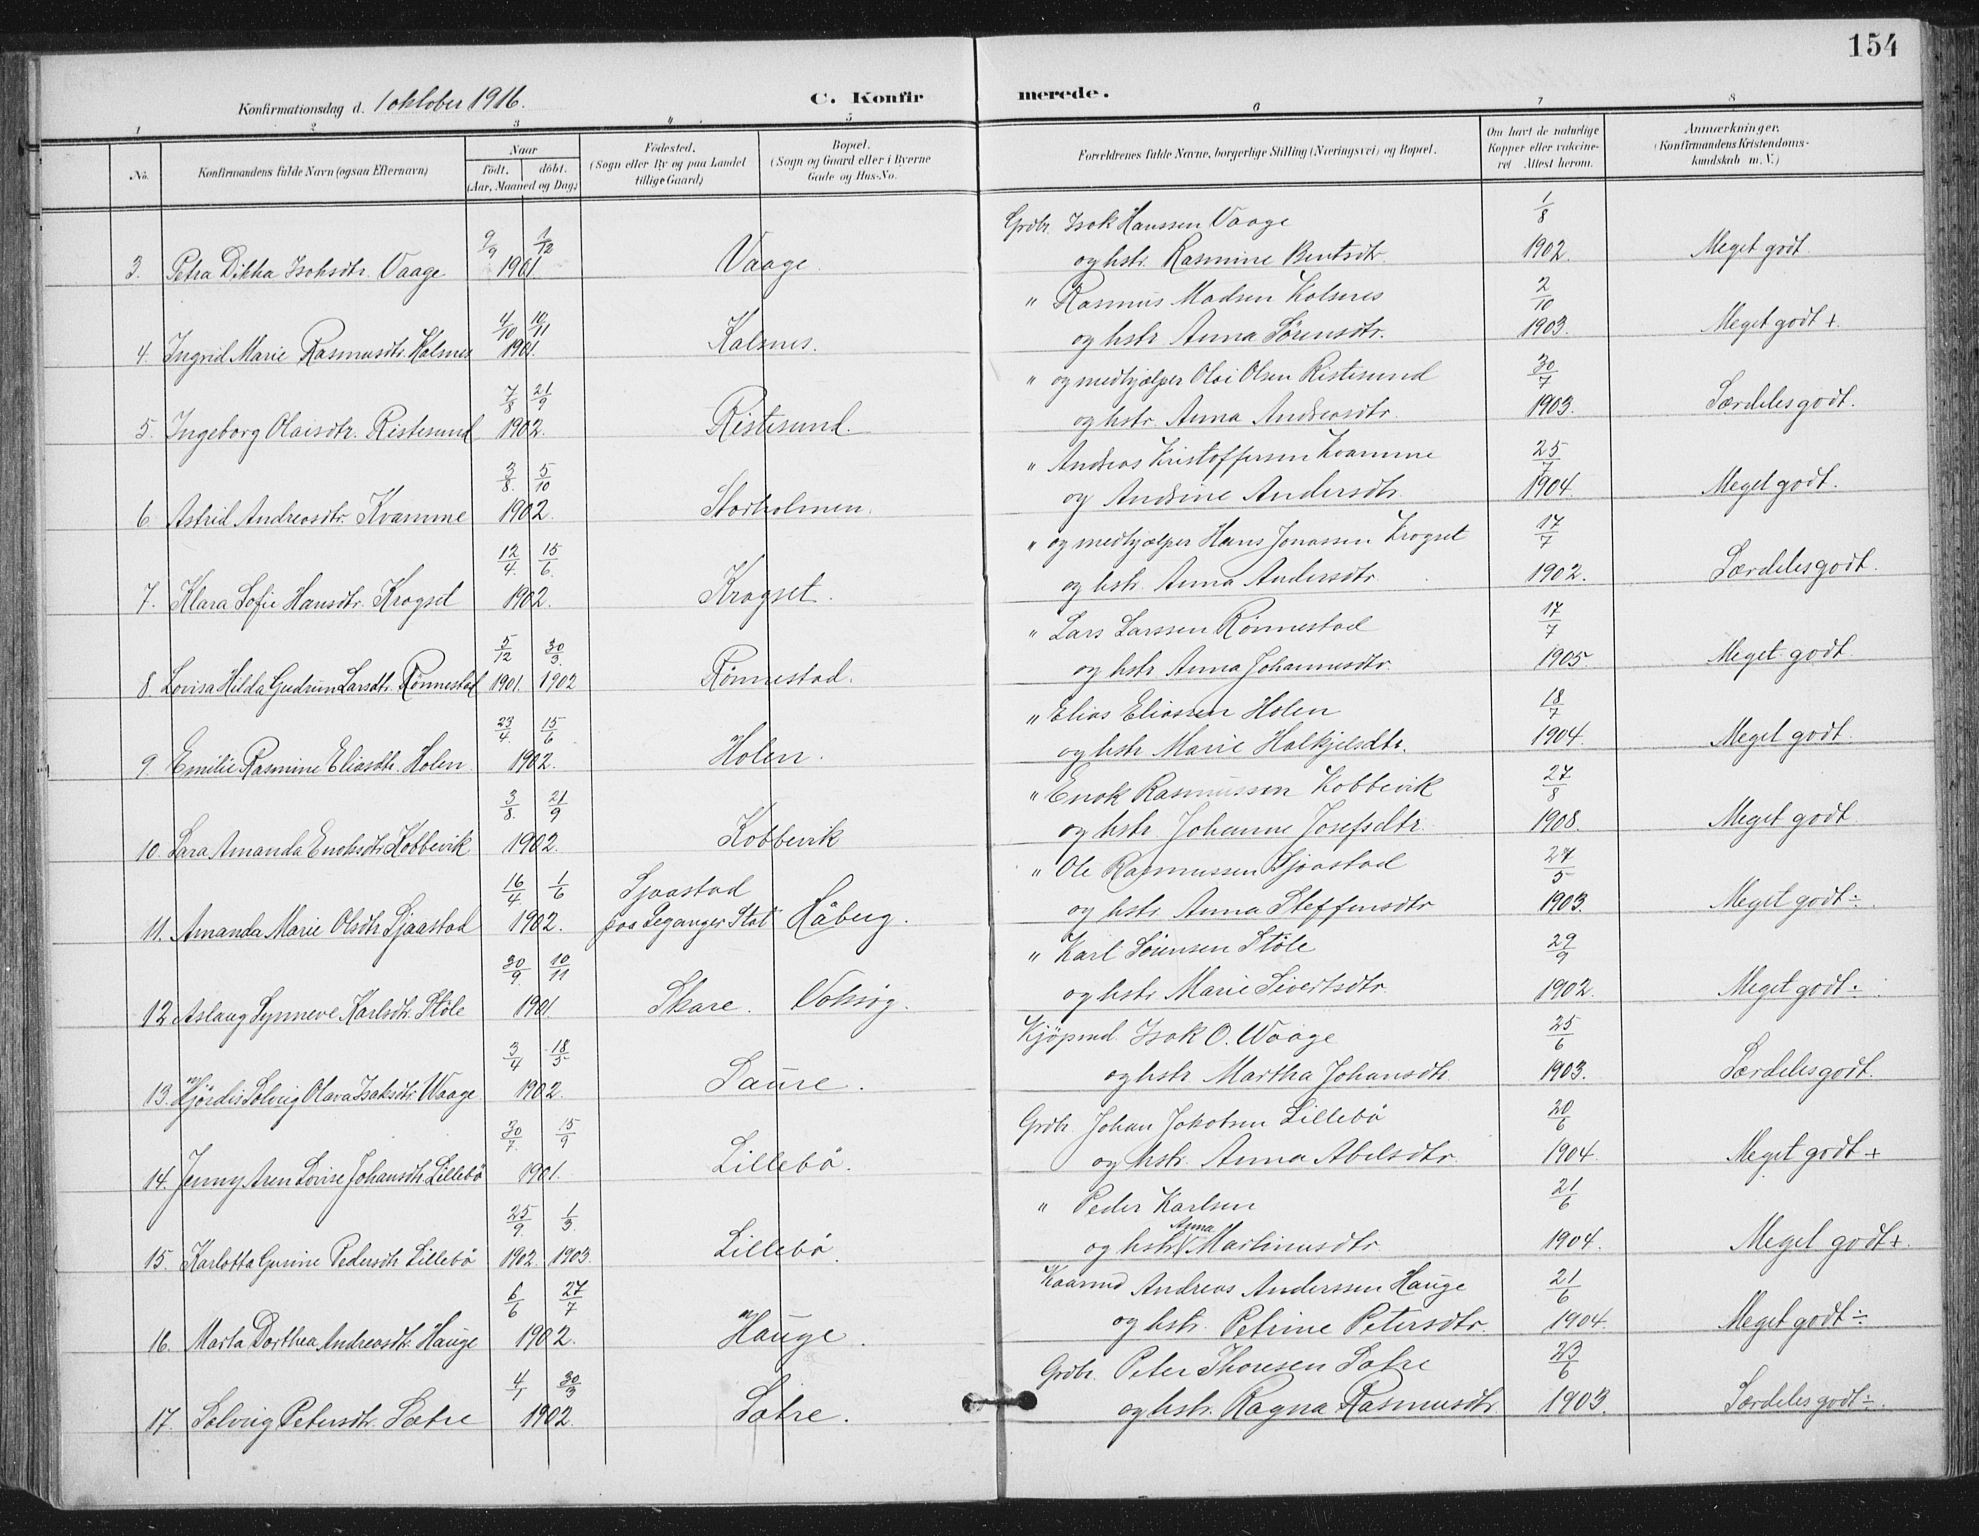 154
Konfirmationsdag d. 1 oktober 1916. C. Konfirmerede.
1 2 3 4 5 6 7 8
No. Konfirmandens fulde Navn (ogsaa Efternavn) Naar født, døbt. (Aar, Maaned og Dag) Fødested. (Sogn eller By og paa Landet tillige Gaard) Bopæl. (Sogn og Gaard eller i Byerne Gade og Hus-No. Forældrenes fulde Navne, borgerlige Stilling (Næringsvei) og Bopæl. Om havt de naturlige Kopper eller vakcineret Attest herom. Anmærkninger. (Konfirmandens Kristendomskundskab m. V.)
9/9 1/12 Grdbr. Isak Hanssen Vaage 1/8
3. Petra Dikka Isaksdtr. Vaage 1901. Vaage. og hstr. Rasmine Bentsdtr. 1902. Meget godt
4/10 10/11 " Rasmus Madsen Kalsnes 2/10
4. Ingrid Marie Rasmusdtr. Kalsnes 1901. Kalsnes. og hstr Anna Sørensdtr. 1903. Meget godt +
7/8 21/9 " og medhjælper Olai Olsen Ristesund 30/7
5. Ingeborg Olaisdtr. Ristesund 1902. Ristesund. og hstr Anna Andreasdtr. 1903. Særdeles godt.
3/8. 5/10 " Andreas Kristoffersen Kvamme 25/7
6. Astrid Andreasdtr. Kvamme 1902. Storholmen. og Andrine Andersdtr. 1904. Meget godt.
12/4. 15/6. " og medhjælper Hans Jonassen Krogset 17/7
7. Klara Sofie Hansdtr. Krogset 1902. Krogset. og hstr. Anna Andersdtr 1902. Særdeles godt.
5/12 30/3. " Lars Larssen Rönnestad 17/7
8 Lovisa Hilda Gudrun Larsdtr. Rönnestad 1901. 1902 Rönnestad. og hstr Anna Johannesdtr. 1905 Meget godt
23/4. 15/6 " Elias Eliassen Holen 18/7
9 Emilie Rasmine Eliasdtr. Holen. 1902. Holen. og hstr. Marie Halkjelsdtr. 1904. Meget godt.
3/8. 21/9 " Enok Rasmussen Kobbevik 27/8
10. Lara Amanda Enoksdtr Kobbevik 1902. Kobbevik og hstr Johanne Josefsdtr. 1908. Meget godt
16/4. 1/6 Sjaastad " Ole Rasmussen Sjaastad 27/5
11. Amanda Marie Olsdtr. Sjaastad 1902. paa Leganger Stat Håberg. og hstr. Anna Steffensdtr 1903. Meget godt ÷.
30/9. 10/11 " Karl Sörensen Stöle 29/9
12 Aslaug Synneve Karlsdtr. Stöle 1901. Skare. Voksög. og hstr Marie Sivertsdtr 1902. Meget godt ÷
3/4 18/5 Kjöpmd. Isak O. Waage 25/6
13. Hjördis Solveig Olava Isaksdtr Waage 1902. Saure. og hstr Martha Johansdtr 1903. Særdeles godt.
30/7. 15/9 Grdbr. Johan Jakobsen Lillebö 20/6
14. Jenny Aren Lovise Johansdtr. Lillebö 1901. Lillebö. og hstr. Anna Abelsdtr. 1904. Meget godt +
25/9. 1/3. " Peder Karlsen 21/6
15. Karlotta Gurine Pedersdtr Lillebö 1902. 1903. Lillebö. og hstr Anna Martinusdtr 1904. Meget godt +.
6/6 27/7 Kaarmd Andreas Anderssen Hauge 21/6
16. Marta Dorthea Andreasdtr. Hauge 1902. Hauge. og hstr. Petrine Petersdtr. 1904. Meget godt ÷
4/1 30/3 Grdbr. Peter Thoresen Sætre 23/6
17. Solveig Petersdtr. Sætre 1902. Sætre. og hstr. Ragna Rasmusdtr. 1903. Særdeles godt ÷.